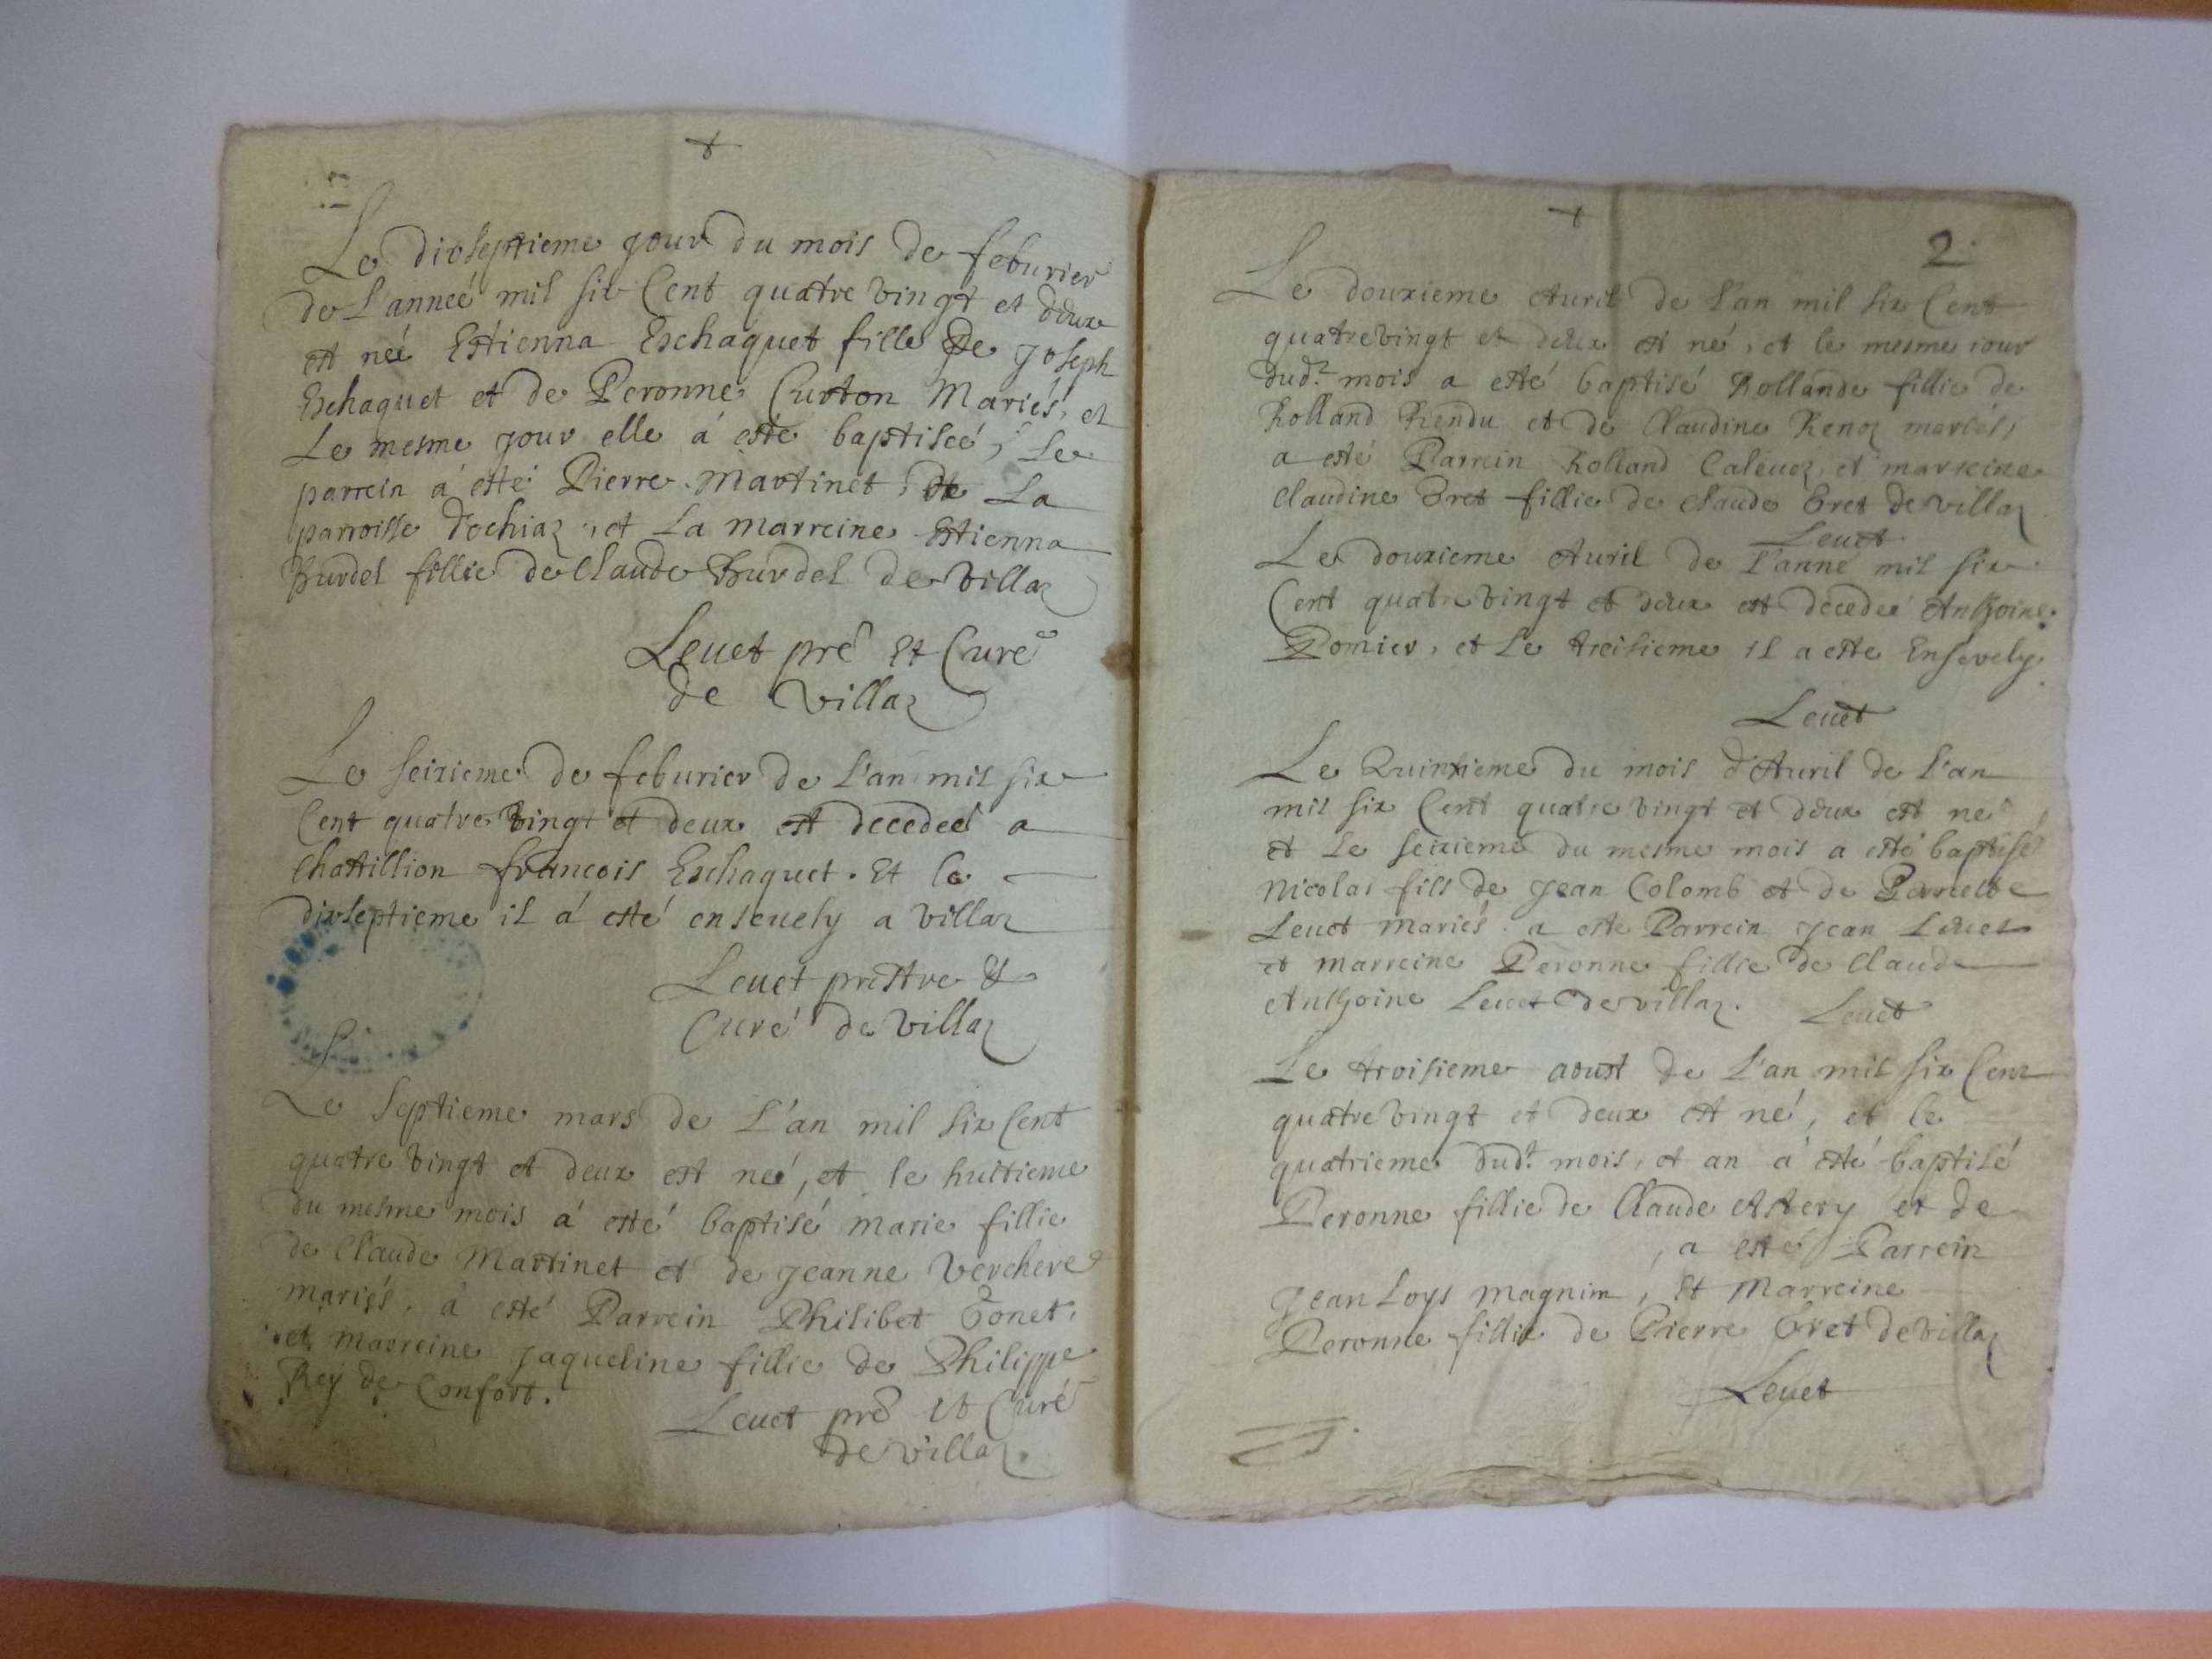 Le dixseptieme jour du mois de feburier
de L'anneé mil six Cent quatre vingt et deux
est neé Estienna Eschaquet fille De Joseph
Eschaquet et de Peronne Curton Mariés, et
Le mesme jour elle á esté baptiseé, Le
parrein á esté Pierre Martinet, de La
parroisse d'ochiaz, et La marreine Estienna
Burdel fillie de Claude Burdel de villaz
Leuet pre Et Curé
de villaz
Le seixieme de feburier de l'an mil six
Cent quatre vingt et deux est decedeé a
Chastillion francois Eschaquet. Et le
dixseptieme il á esté enseuely a villaz
Leuet prestre &
Curé de villaz
Le Septieme mars de L'an mil six Cent
quatre vingt et deux est neé, et le huitieme
du mesme mois á esté baptisé marie fillie
de Claude Martinet et de Jeanne Verchere
mariés, á esté Parrein Philibet Tonet,
et marreine Jaqueline fillie de Philippe
Rey de Confort.
Leuet pre et Curé
de villaz.
2.
Le douxieme Auril de l'an mil six Cent
quatrevingt et deux est né, et le mesme iour
dudt mois a esté baptisé Rollande fillie de
Rolland Rendu et de Claudine Renoz mariés,
a esté Parrein Rolland et marreine
Claudine Bret fillie de Claude Bret de villaz
Leuet.
Le douxieme Auril de l'anné mil six
Cent quatre vingt et deux est decedeé Anthoine
Pomier, et Le treisieme il a este Ensevely
Leuet
Le Quinxieme du mois d'Auril de l'an
mil six Cent quatre vingt et deux est né,
et Le seixieme du mesme mois a esté baptisé
Nicolas fils de Jean Colomb et de
Leuet mariés. a esté Parrein Jean Leuet
et marreine Peronne fillie de Claude
Anthoine Leuet de villaz. Leuet
Le troisieme aoust de L'an mil six Cent
quatre vingt et deux est né, et le
quatrieme dudt mois, et an á esté baptisé
Peronne fillie de Claude et de
, a esté Parrein
Jean Loys magnin, Et Marreine
Peronne fillie de Pierre Bret de villaz
Leuet